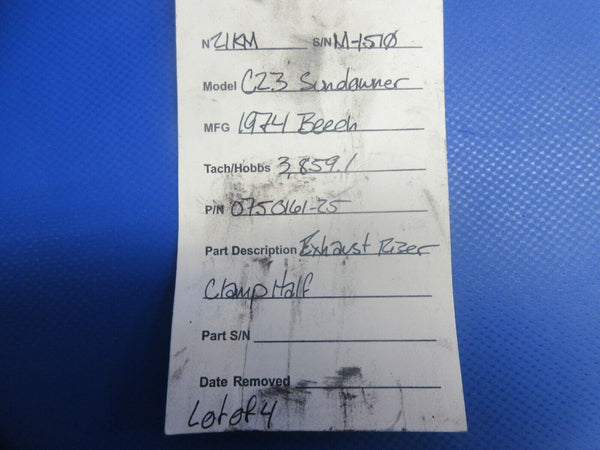 N 21KM S/N M-1510
Model C23 Sundowner
MFG 1974 Beech
Tach/Hobbs 3,859.1
P/N 0750161-25
Part Description Exhaust Riser
Clamp Half
Part S/N
Date Removed
Lot of 4